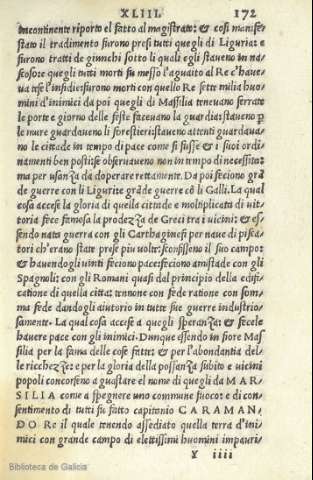 XLIII. 172
incontinente riporto el fatto al magistrato: & cosi manifes
stato il tradimento furono presi tutti quegli di Liguria: e
furono tratti de giunchi sotto li quali egli stavano in na/
scosore quegli tutti morti su messo l'aguaito al Re c'haue/
ua tese l'insidie: furono morti con quello Re sette milia huo
mini d'inimici da poi quegli di Massilia teneuano serrate
le porte e giorno delle feste faceuano la guardia: stauano p
le mure guardauano li forestieri: stauano attenti guardaua/
no le cittade in tempo di pace come si fusse & i suoi ordi
namenti ben posti: se obseruaueno non in tempo di necessita:
ma per usanza da doperare rettamente. Da poi feciono grã
de guerre con li Ligurite grãde guerre cõ li Galli. La qual
cosa accese la gloria di quella cittade e moltiplicata di uit/
toria fece famosa la prodezza de Greci tra i uicini: & es/
sendo nata guerra con gli Carthaginesi per naue di pisca/
tori ch'erano state prese piu uolte: sconfisseno il suo campo:
& hauendogli uinti feciono pace: feciono amistade con gli
Spagnoli: con gli Romani quasi dal principio della edifi/
catione di quella citta: tennono con fede ratione con som/
ma fede dandogli aiutorio in tutte sue guerre industrio/
samente. La qual cosa accese a quegli speranza: & fecele
hauere pace con gli inimici. Dunque essendo in fiore Mas/
silia per la fama delle cose fatte: & per l'abondantia del/
le ricchezze: e per la gloria della possanza subito e uicini
popoli concorseno a guastare el nome di quegli da MAR/
SILIA come a spegnere uno commune fuoco: e di con/
sentimento di tutti fu fatto capitonio CARAMAN/
DO Re il quale tenendo assediato quella terra d'ini/
mici con grande campo di elettissimi huomini impauri/
Y iiii
Biblioteca de Galicia